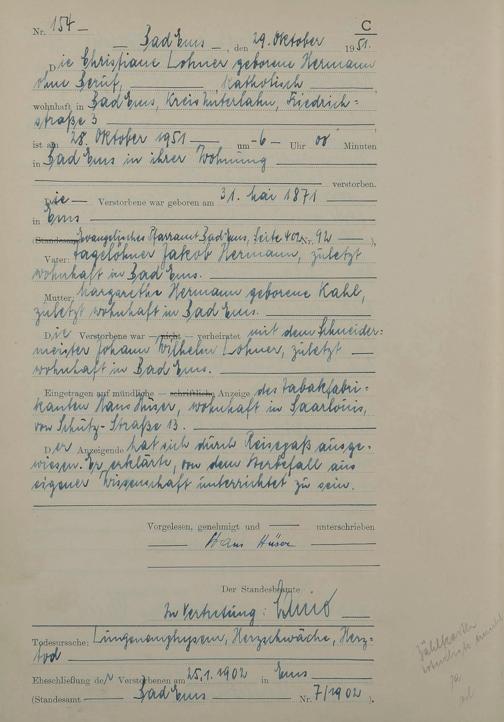 Nr. 154
C
Bad Ems, den 29. Oktober 1951.
Die Christiane Lohner geborene Hermann
ohne Beruf, katholisch
wohnhaft in Bad Ems, Kreis Unterlahn, Friedrich=
straße 3
ist am 28. Oktober 1951 um 6 Uhr 00 Minuten
in Bad Ems in ihrer Wohnung
verstorben.
Die Verstorbene war geboren am 31. Mai 1871
in Ems
(Standesamt Evangelisches Pfarramt Bad Ems, Seite 402 Nr. 92 ),
Vater: Tagelöhner Jakob Hermann, zuletzt
wohnhaft in Bad Ems.
Mutter: Margarethe Hermann geborene Kahl,
zuletzt wohnhaft in Bad Ems.
Die Verstorbene war — nicht — verheiratet mit dem Schneider=
meister Johann Wilhelm Lohner, zuletzt
wohnhaft in Bad Ems.
Eingetragen auf mündliche — schriftliche Anzeige des Tabakfabri=
kanten Hans Hüser, wohnhaft in Saarlouis,
von Schütz-Straße 13.
Der Anzeigende hat sich durch Reisepaß ausge=
wiesen. Er erklärte, von dem Sterbefall aus
eigener Wissenschaft unterrichtet zu sein.
Vorgelesen, genehmigt und unterschrieben
Hans Hüser
Der Standesbeamte
In Vertretung:
Todesursache: Lungenemphysem, Herzschwäche, Herz=
tod
Eheschließung der Verstorbenen am 25.1.1902 in Ems
(Standesamt Bad Ems Nr. 7/1902 ).
Zählkarte